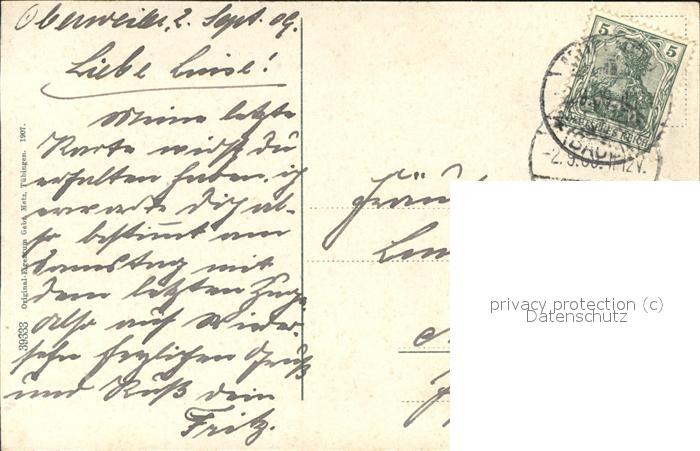 Oberweiler, 2. Sept. 09.
Liebe Luise!
Meine letzte
Karte wirst du
erhalten haben. ich
erwarte Dich al-
so bestimt am
Samstag mit
dem letzten Zuge.
Also auf Wieder-
sehn herzlichen Gruß
und Kuß dein
Fritz.
39333 Original-Eigentum Gebr. Metz, Tübingen. 1907.
5 5
DEUTSCHES REICH
Fräu
privacy protection (c)
Datenschutz